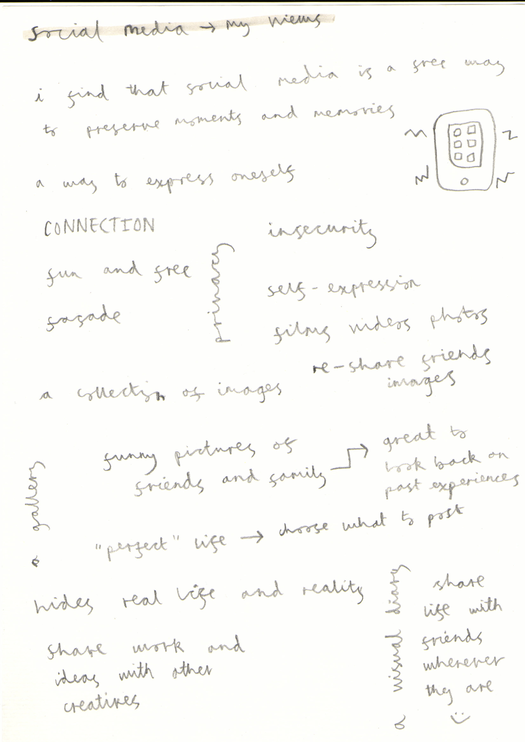 social media → my views
i find that social media is a free way
to preserve moments and memories
a way to express oneself
CONNECTION
insecurity
fun and free
primary
self-expression
façade
films videos photos
re-share friends
images
a collection of images
funny pictures of
friends and family
great to
look back on
past experiences
a gallery
"perfect" life → choose what to post
hides real life and reality
share work and
ideas with other
creatives
a visual diary
share
life with
friends
wherever
they are